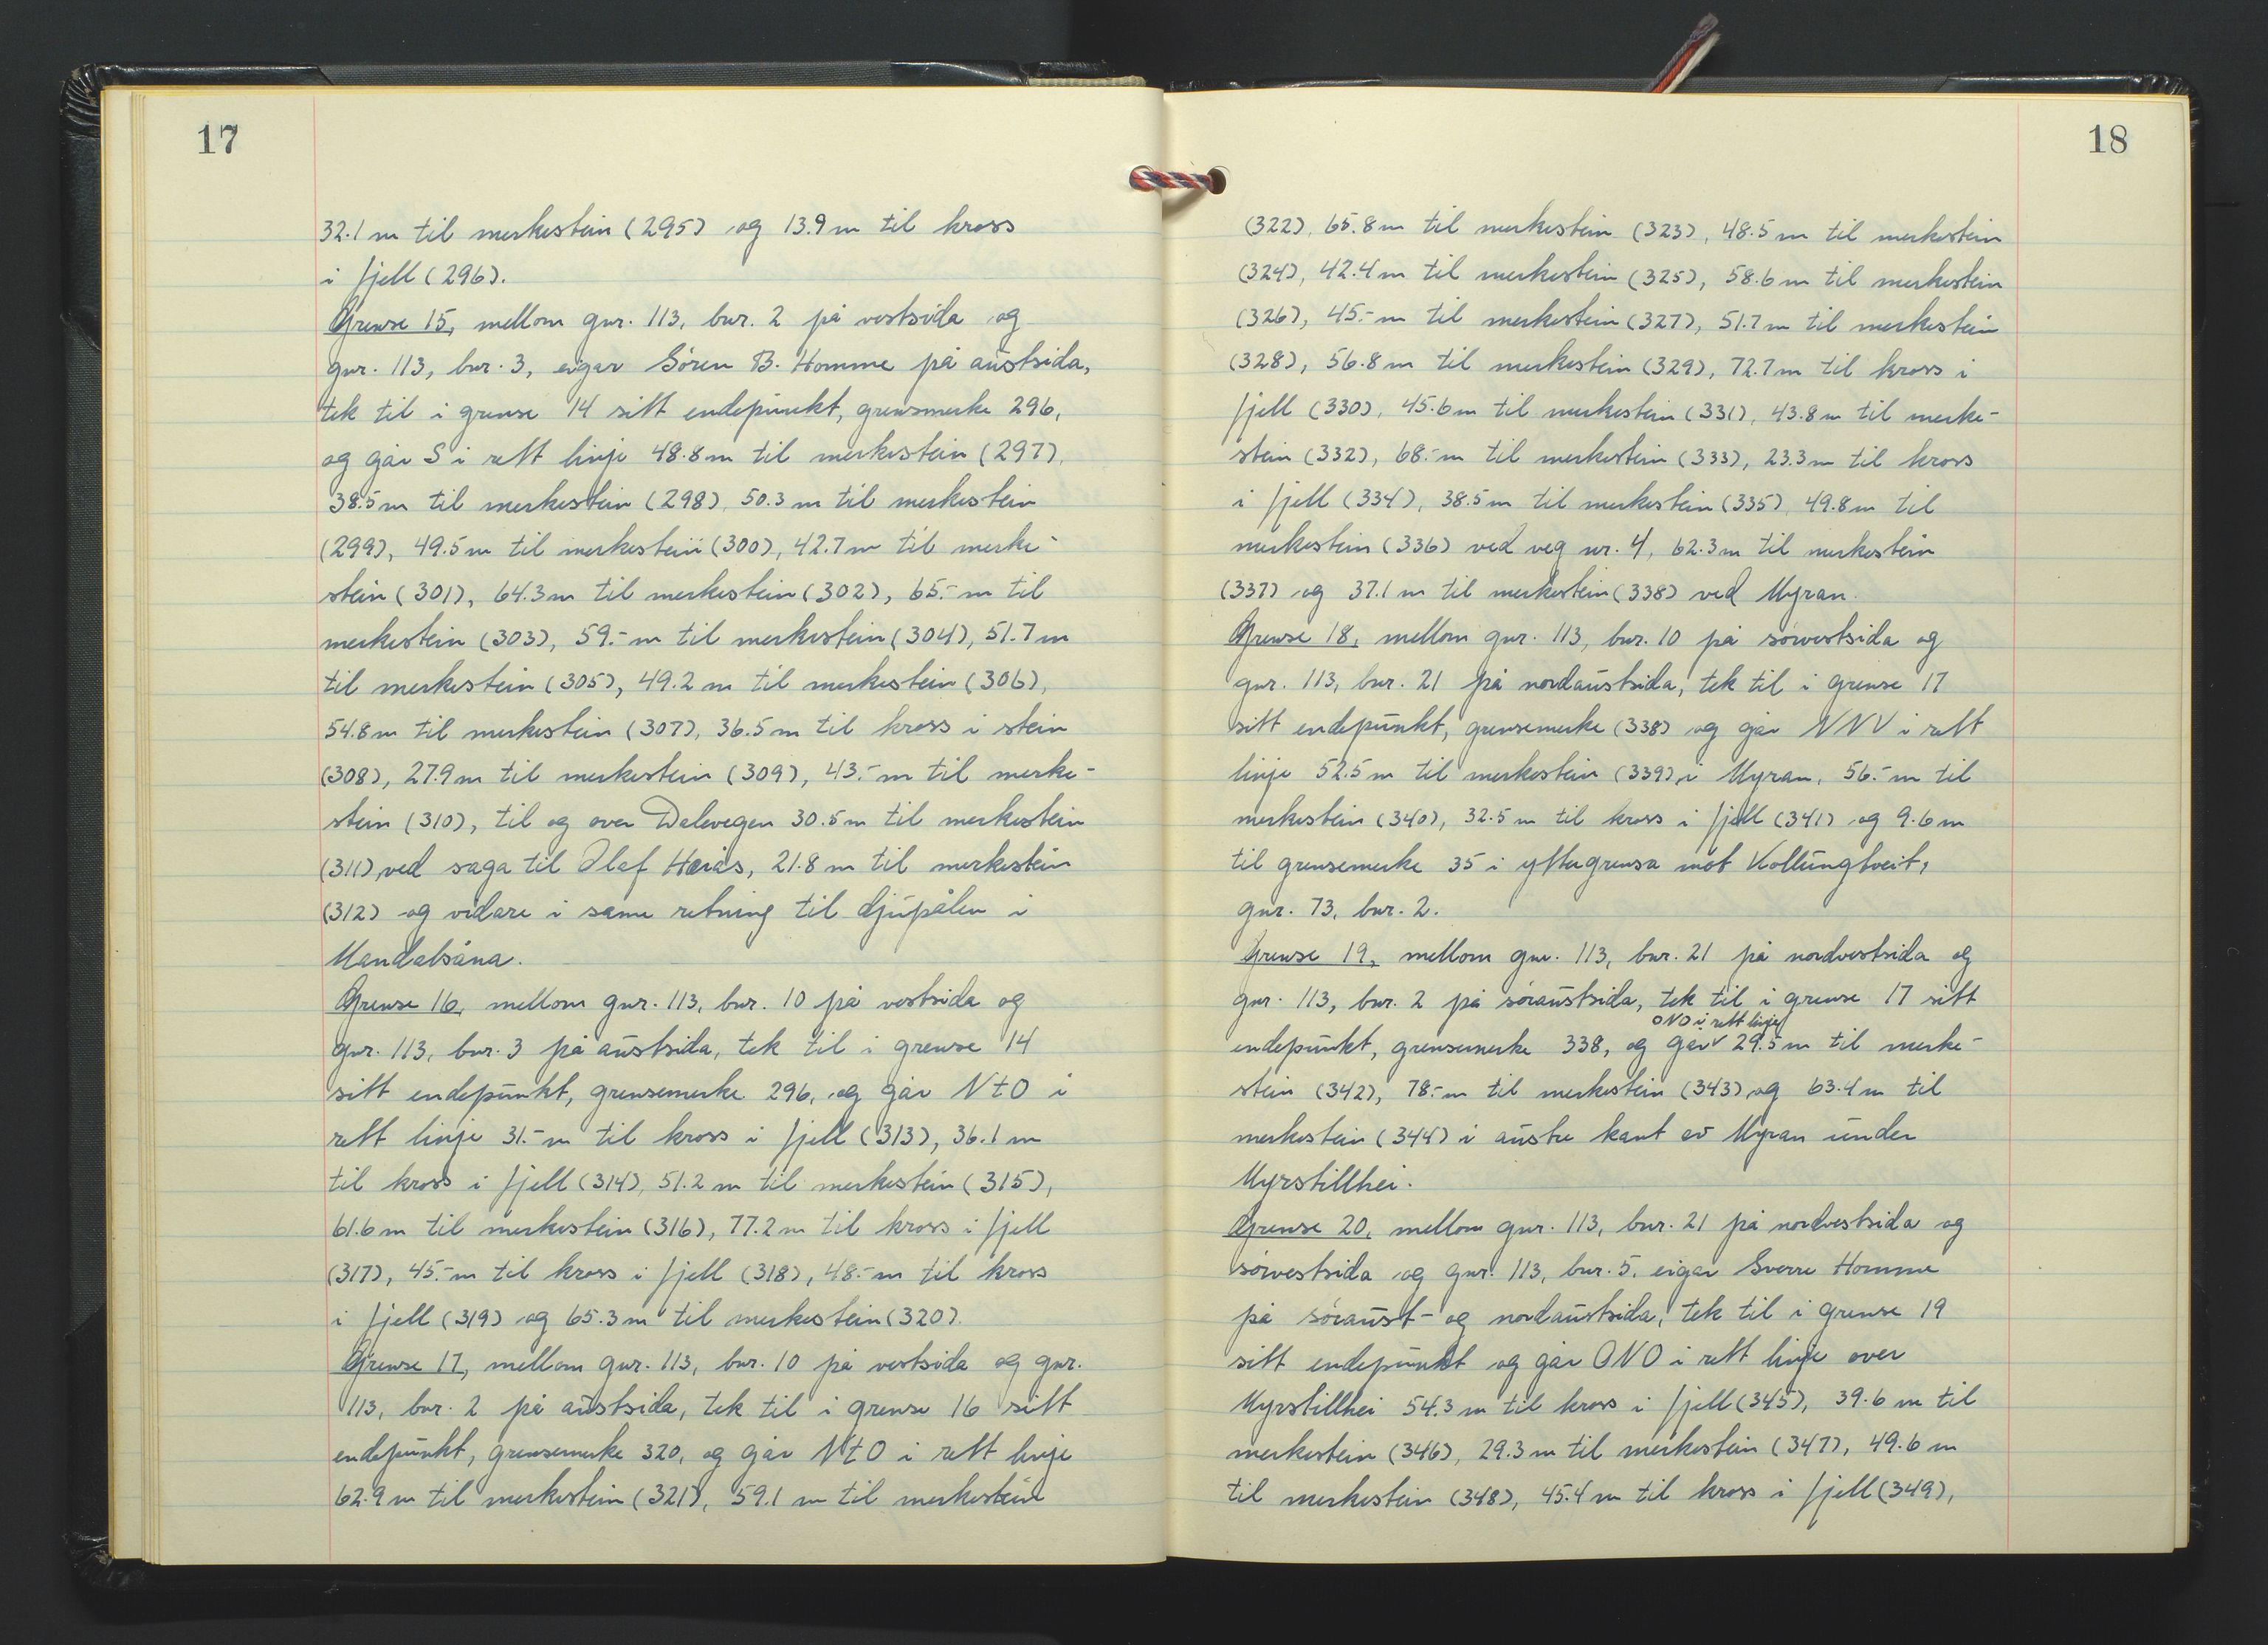 17
32.1 m til merkestein (295) og 13.9 m til kross
i fjell (296).
Grense 15, mellom gnr. 113, bnr. 2 på vestsida og
gnr. 113, bnr. 3, eigar Søren B. Homme på austsida,
tek til i grense 14 sitt endepunkt, grensmerke 296,
og går S i rett linje 48.8 m til merkestein (297),
38.5 m til merkestein (298), 50.3 m til merkestein
(299), 49.5 m til merkestein (300), 42.7 m til merke-
stein (301), 64.3 m til merkestein (302), 65.- m til
merkestein (303), 59.- m til merkestein (304), 51.7 m
til merkestein (305), 49.2 m til merkestein (306),
54.8 m til merkestein (307), 36.5 m til kross i stein
(308), 27.9 m til merkestein (309), 43.- m til merke-
stein (310), til og over Dalevegen 30.5 m til merkestein
(311), ved saga til Olaf Heiås, 21.8 m til merkestein
(312) og vidare i same retning til djupålen i
Mandalsåna.
Grense 16, mellom gnr. 113, bnr. 10 på vestsida og
gnr. 113, bnr. 3 på austsida, tek til i grense 14
sitt endepunkt, grensemerke 296, og går NtO i
rett linje 31.- m til kross i fjell (313), 36.1 m
til kross i fjell (314), 51.2 m til merkestein (315),
61.6 m til merkestein (316), 77.2 m til kross i fjell
(317), 45.- m til kross i fjell (318), 48.- m til kross
i fjell (319) og 65.3 m til merkestein (320).
Grense 17, mellom gnr. 113, bnr. 10 på vestsida og gnr.
113, bnr. 2 på austsida, tek til i grense 16 sitt
endepunkt, grensemerke 320, og går NtO i rett linje
62.9 m til merkestein (321), 59.1 m til merkestein
18
(322), 65.8 m til merkestein (323), 48.5 m til merkestein
(324), 42.4 m til merkestein (325), 58.6 m til merkestein
(326), 45.- m til merkestein (327), 51.7 m til merkestein
(328), 56.8 m til merkestein (329), 72.7 m til kross i
fjell (330), 45.6 m til merkestein (331), 43.8 m til merke-
stein (332), 68.- m til merkestein (333), 23.3 m til kross
i fjell (334), 38.5 m til merkestein (335), 49.8 m til
merkestein (336) ved veg nr. 4, 62.3 m til merkestein
(337) og 37.1 m til merkestein (338) ved Myran.
Grense 18, mellom gnr. 113, bnr. 10 på sørvestsida og
gnr. 113, bnr. 21 på nordaustsida, tek til i grense 17
sitt endepunkt, grensemerke (338) og går NNV i rett
linje 52.5 m til merkestein (339) i Myran, 56.- m til
merkestein (340), 32.5 m til kross i fjell (341) og 9.6 m
til grensemerke 35 i yttergrensa mot Kollungtveit,
gnr. 73, bnr. 2.
Grense 19, mellom gnr. 113, bnr. 21 på nordvestsida og
gnr. 113, bnr. 2 på søraustsida, tek til i grense 17 sitt
ONO i rett linje
endepunkt, grensemerke 338, og går 29.5 m til merke-
stein (342), 78.- m til merkestein (343) og 63.4 m til
merkestein (344) i austre kant av Myran under
Myrstillhei.
Grense 20, mellom gnr. 113, bnr. 21 på nordvestsida og
sørvestsida og gnr. 113, bnr. 5, eigar Sverre Homme
på søraust- og nordaustsida, tek til i grense 19
sitt endepunkt og går ONO i rett linje over
Myrstillhei 54.3 m til kross i fjell (345), 39.6 m til
merkestein (346), 29.3 m til merkestein (347), 49.6 m
til merkestein (348), 45.4 m til kross i fjell (349),